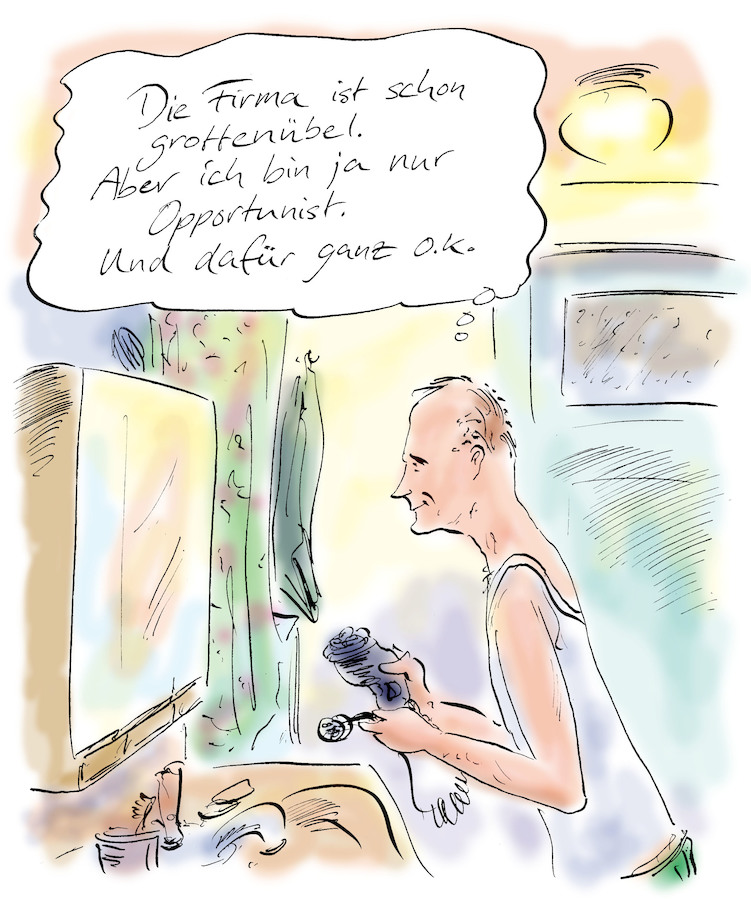 Die Firma ist schon
grottenübel.
Aber ich bin ja nur
Opportunist.
Und dafür ganz o.k.